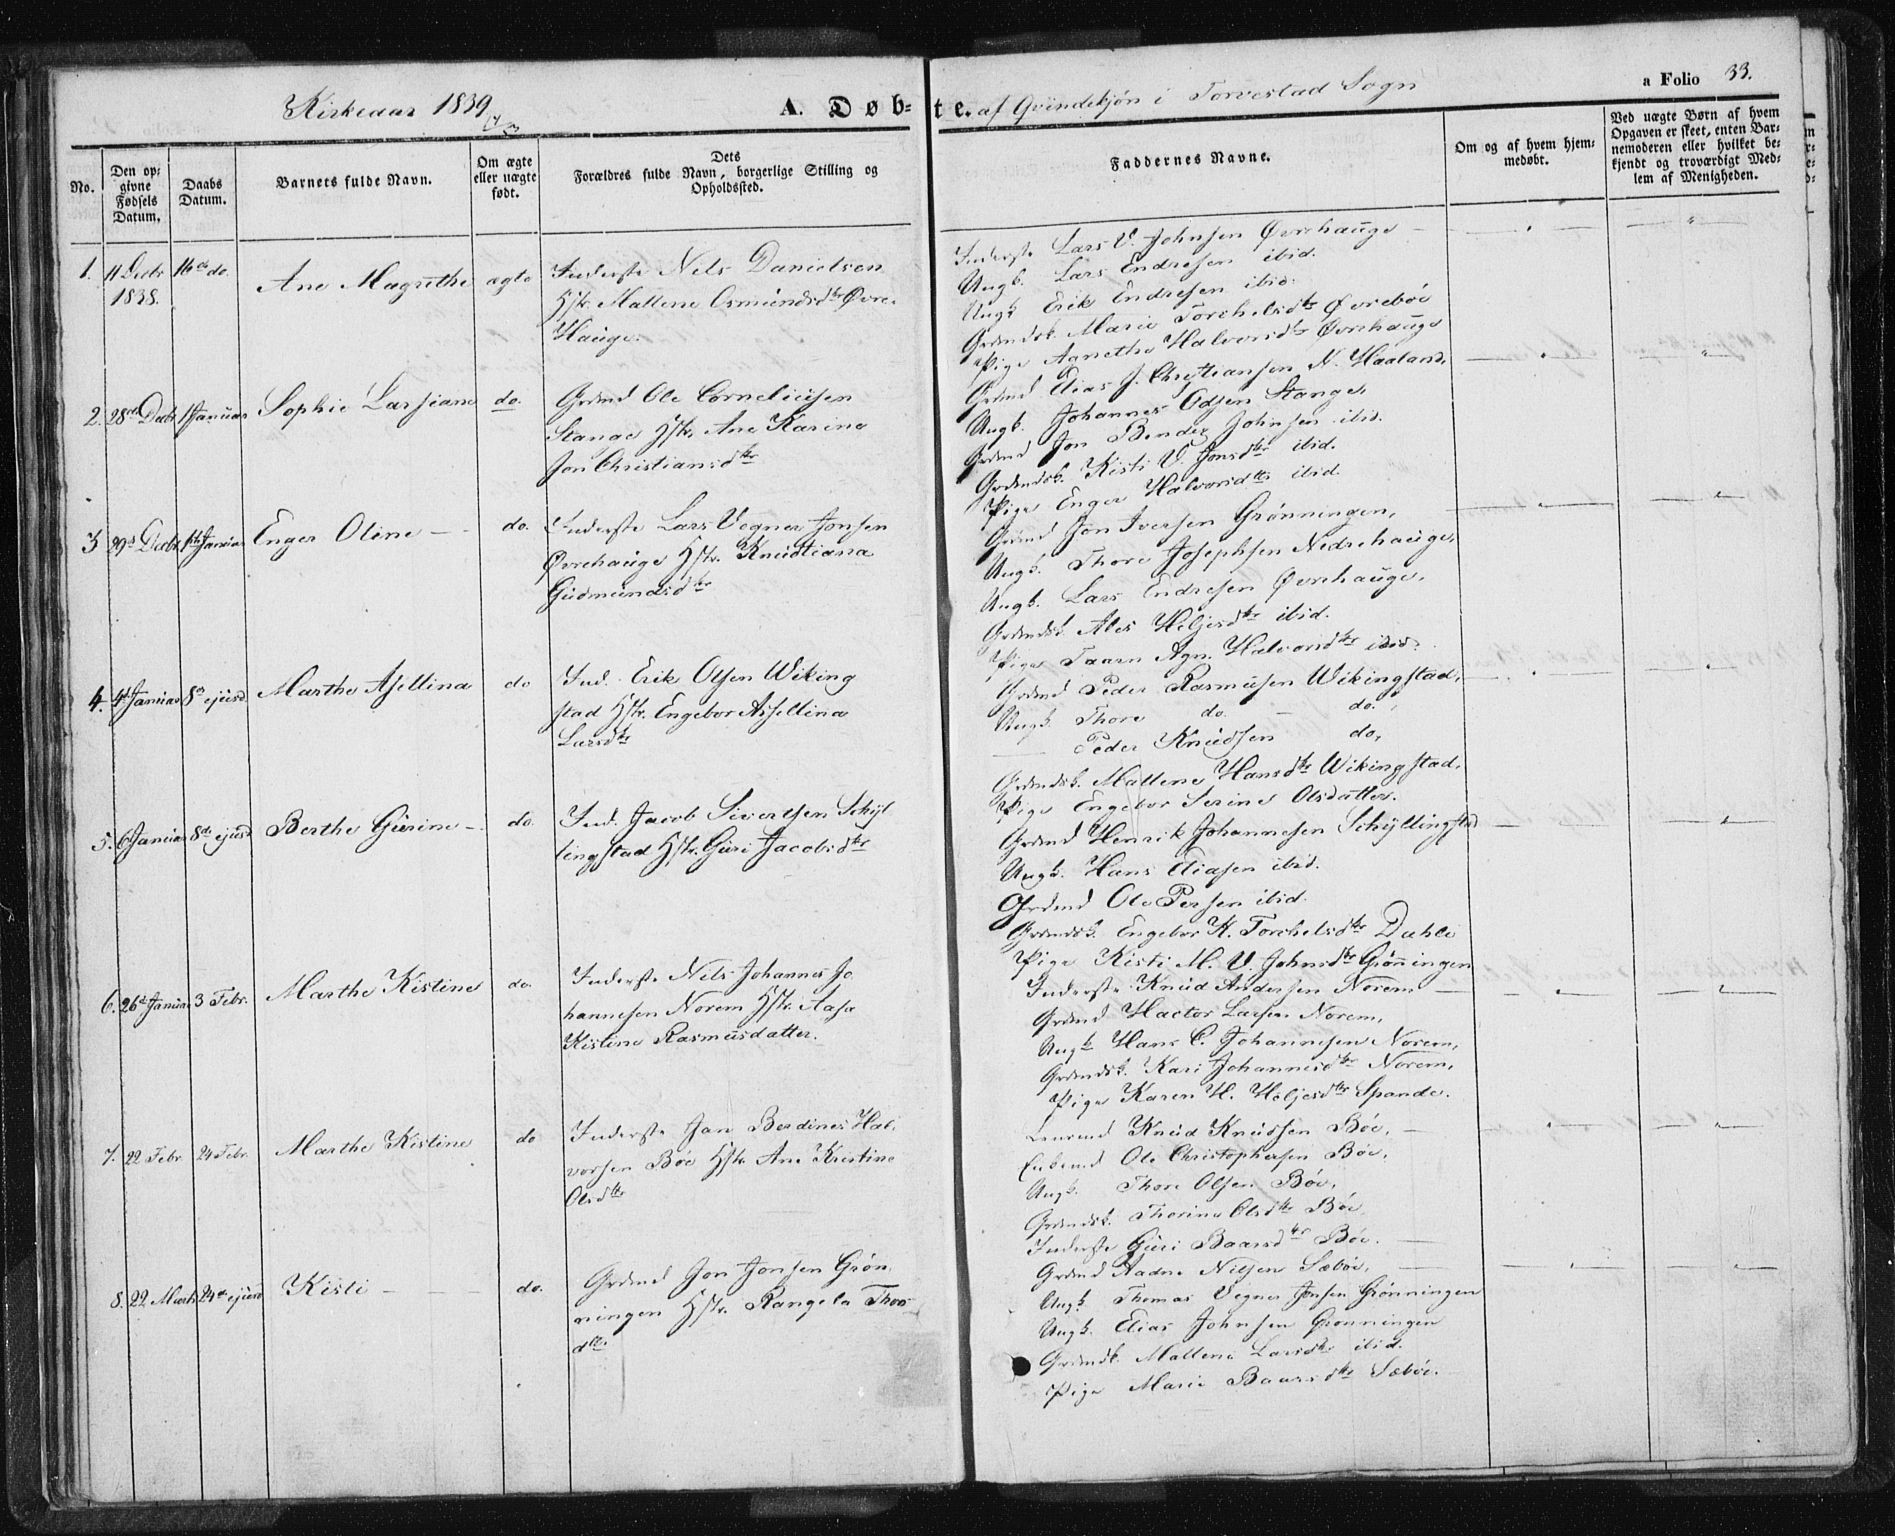 Kirkeaar 1839
A. Døb-
te. af Qvindekjøn i Torvestad Sogn
a Folio 33.
No.
Den op-
givne
Fødsels
Datum.
Daabs
Datum.
Barnets fulde Navn.
Om ægte
eller uægte
født.
Dets
Forældres fulde Navn, borgerlige Stilling og
Opholdssted.
Faddernes Navne.
Om og af hvem hjem-
medøbt.
Ved uægte Børn af hvem
Opgaven er skeet, enten Bar-
nemoderen eller hvilket be-
kjendt og troværdigt Med-
lem af Menigheden.
1. 11 Decbr 1838. 16de do. Ane Magrethe ægte
Inderste Nels Danielsen
Hstr. Mallene Osmundsdtr Øvre-
Hauge.
Inderste Lars V. Johnsen Øvrehauge
Ungk. Lars Endresen ibid.
Ungk. Erik Endresen ibid.
Grdmdsk. Marie Torchelsdtr Øvrebøe
Pige Agnethe Halvorsdtr Øvrehauge
2. 28de Decbr 1 Januar Sophie Larsiane do.
Grdmd Ole Corneliusen
Stange Hstr. Ane Karine
Jon Christiansdtr
Grdmd Elias J. Christiansen N. Haaland.
Ungk. Johannes Odsen Stange.
Grdmd Jon Bender Johnsen ibid.
Grdmdsk. Kisti V. Jonsdtr ibid.
Pige Enger Halvorsdtr ibid.
3 29d Decbr 1ste Januar Enger Oline do.
Inderste Lars Vegner Jonsen
Øvrehauge Hstr. Knudtiana
Gudmundsdtr
Grdmd Jon Iversen Grønningen,
Ungk. Thore Josephsen Nedrehauge,
Ungk. Lars Endresen Øvrehauge,
Grdmdsk. Ales Heljesdtr ibid.
Pige Taarn Agn. Halvorsdtr ibid.
4. 4d Januar 8de ejusd Marthe Asellina do
Ind. Erik Olsen Wiking
stad Hstr. Engebor Assellina
Larsdtr
Grdmd Peder Rasmusen Wikingstad,
Ungk. Thore do. — do.
— Peder Knudsen do,
Grdmdsk. Mallene Hansdtr Wikingstad,
Pige Engebor Serine Olsdatter.
5. 6 Januar 8de ejusd Berthe Gurine do.
Ind. Jacob Sivertsen Schyl
lingstad Hstr. Guri Jacobsdtr
Grdmd Henrik Johannesen Schyllingstad
Ungk. Hans Eliasen ibid.
Grdmd Ole Persen ibid.
Grdmdsk. Engebor K. Torchelsdtr Dahle
Pige Kisti M. V. Johnsdtr Grønningen
6. 26d Januar 3 Febr. Marthe Kistine do.
Inderste Nils Johannes Jo
hannesen Norem Hstr. Aasa
Kistine Rasmusdatter.
Inderste Knud Andersen Norem
Grdmd Hactor Larsen Norem,
Ungk Hans C. Johannesen Norem,
Grdmdsk. Kari Johannesdtr Norem,
Pige Karen H. Heljesdtr Spande.
7. 22 Febr. 24 Febr. Marthe Kistine do
Inderste Jan Berdines Hal-
vorsen Bøe Hstr Ane Kristine
Olsdtr
Knud Knudsen Bøe,
Ole Christophersen Bøe,
Ungk. Thore Olsen Bøe,
Grdmdsk. Thorine Olsdtr Bøe
Inderste Guri Baarsdtr Bøe.
8. 22 Marts 24de ejusd Kisti do.
Grdmd Jon Jonsen Grøn
ningen Hstr. Rangela Thors
dtr.
Grdmd Aadne Nilsen Sæbøe,
Ungk. Thomas Vegner Jonsen Grønningen
Ungk. Elias Johnsen Grønningen
Grdmdsk. Mallene Larsdtr ibid.
Pige Marie Baarsdtr Sæbøe.